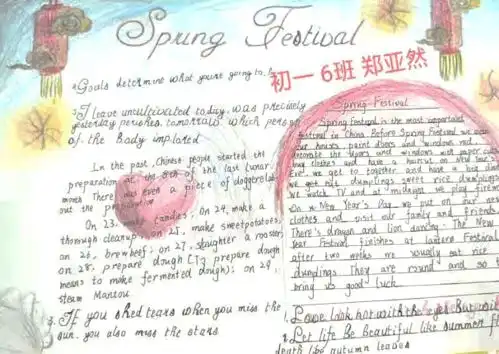 Spring Festival
初一6班 郑亚然
Goals determine what you're going to
I leave uncultivated today, was precisely
yesterday perished tomorrow which person
of the Body implored
In the past, Chinese people started the
preparation on the 8th of the last lunar
month There was even a piece of doggerel
out the preparation
On 23, make candies; On 24, make a
thorough cleanup; on 25, make sweetpotatoes,
on 26, brew beef; on 27, slaughter a rooster
on 28, prepare dough [I3 prepare dough
means to make fermented dough); on 29,
steam Mantou
3. If you shed tears when you miss the
sun, you also miss the stars
Spring Festival
Spring Festival is the most important
festival in China. Before Spring Festival we
our houses, paint doors and windows red
decorate the doors and windows with paper cuts
clothes and have a haircut on New Year's
Eve, we get to together and have a big dinner
we eat dumplings sweet rice dumplings
We watch TV and at midnight we play fire
On New Year's Day, we put on our new
clothes and visit our family and friends
There's dragon and lion dancing. The New
year Festival finishes at Lantern Festival
after two weeks we usually eat rice
dumplings They are round and so
bring us good luck
1. Love look not with the eyes But
2. Let life Be Beautiful like summer
death like autumn leaves